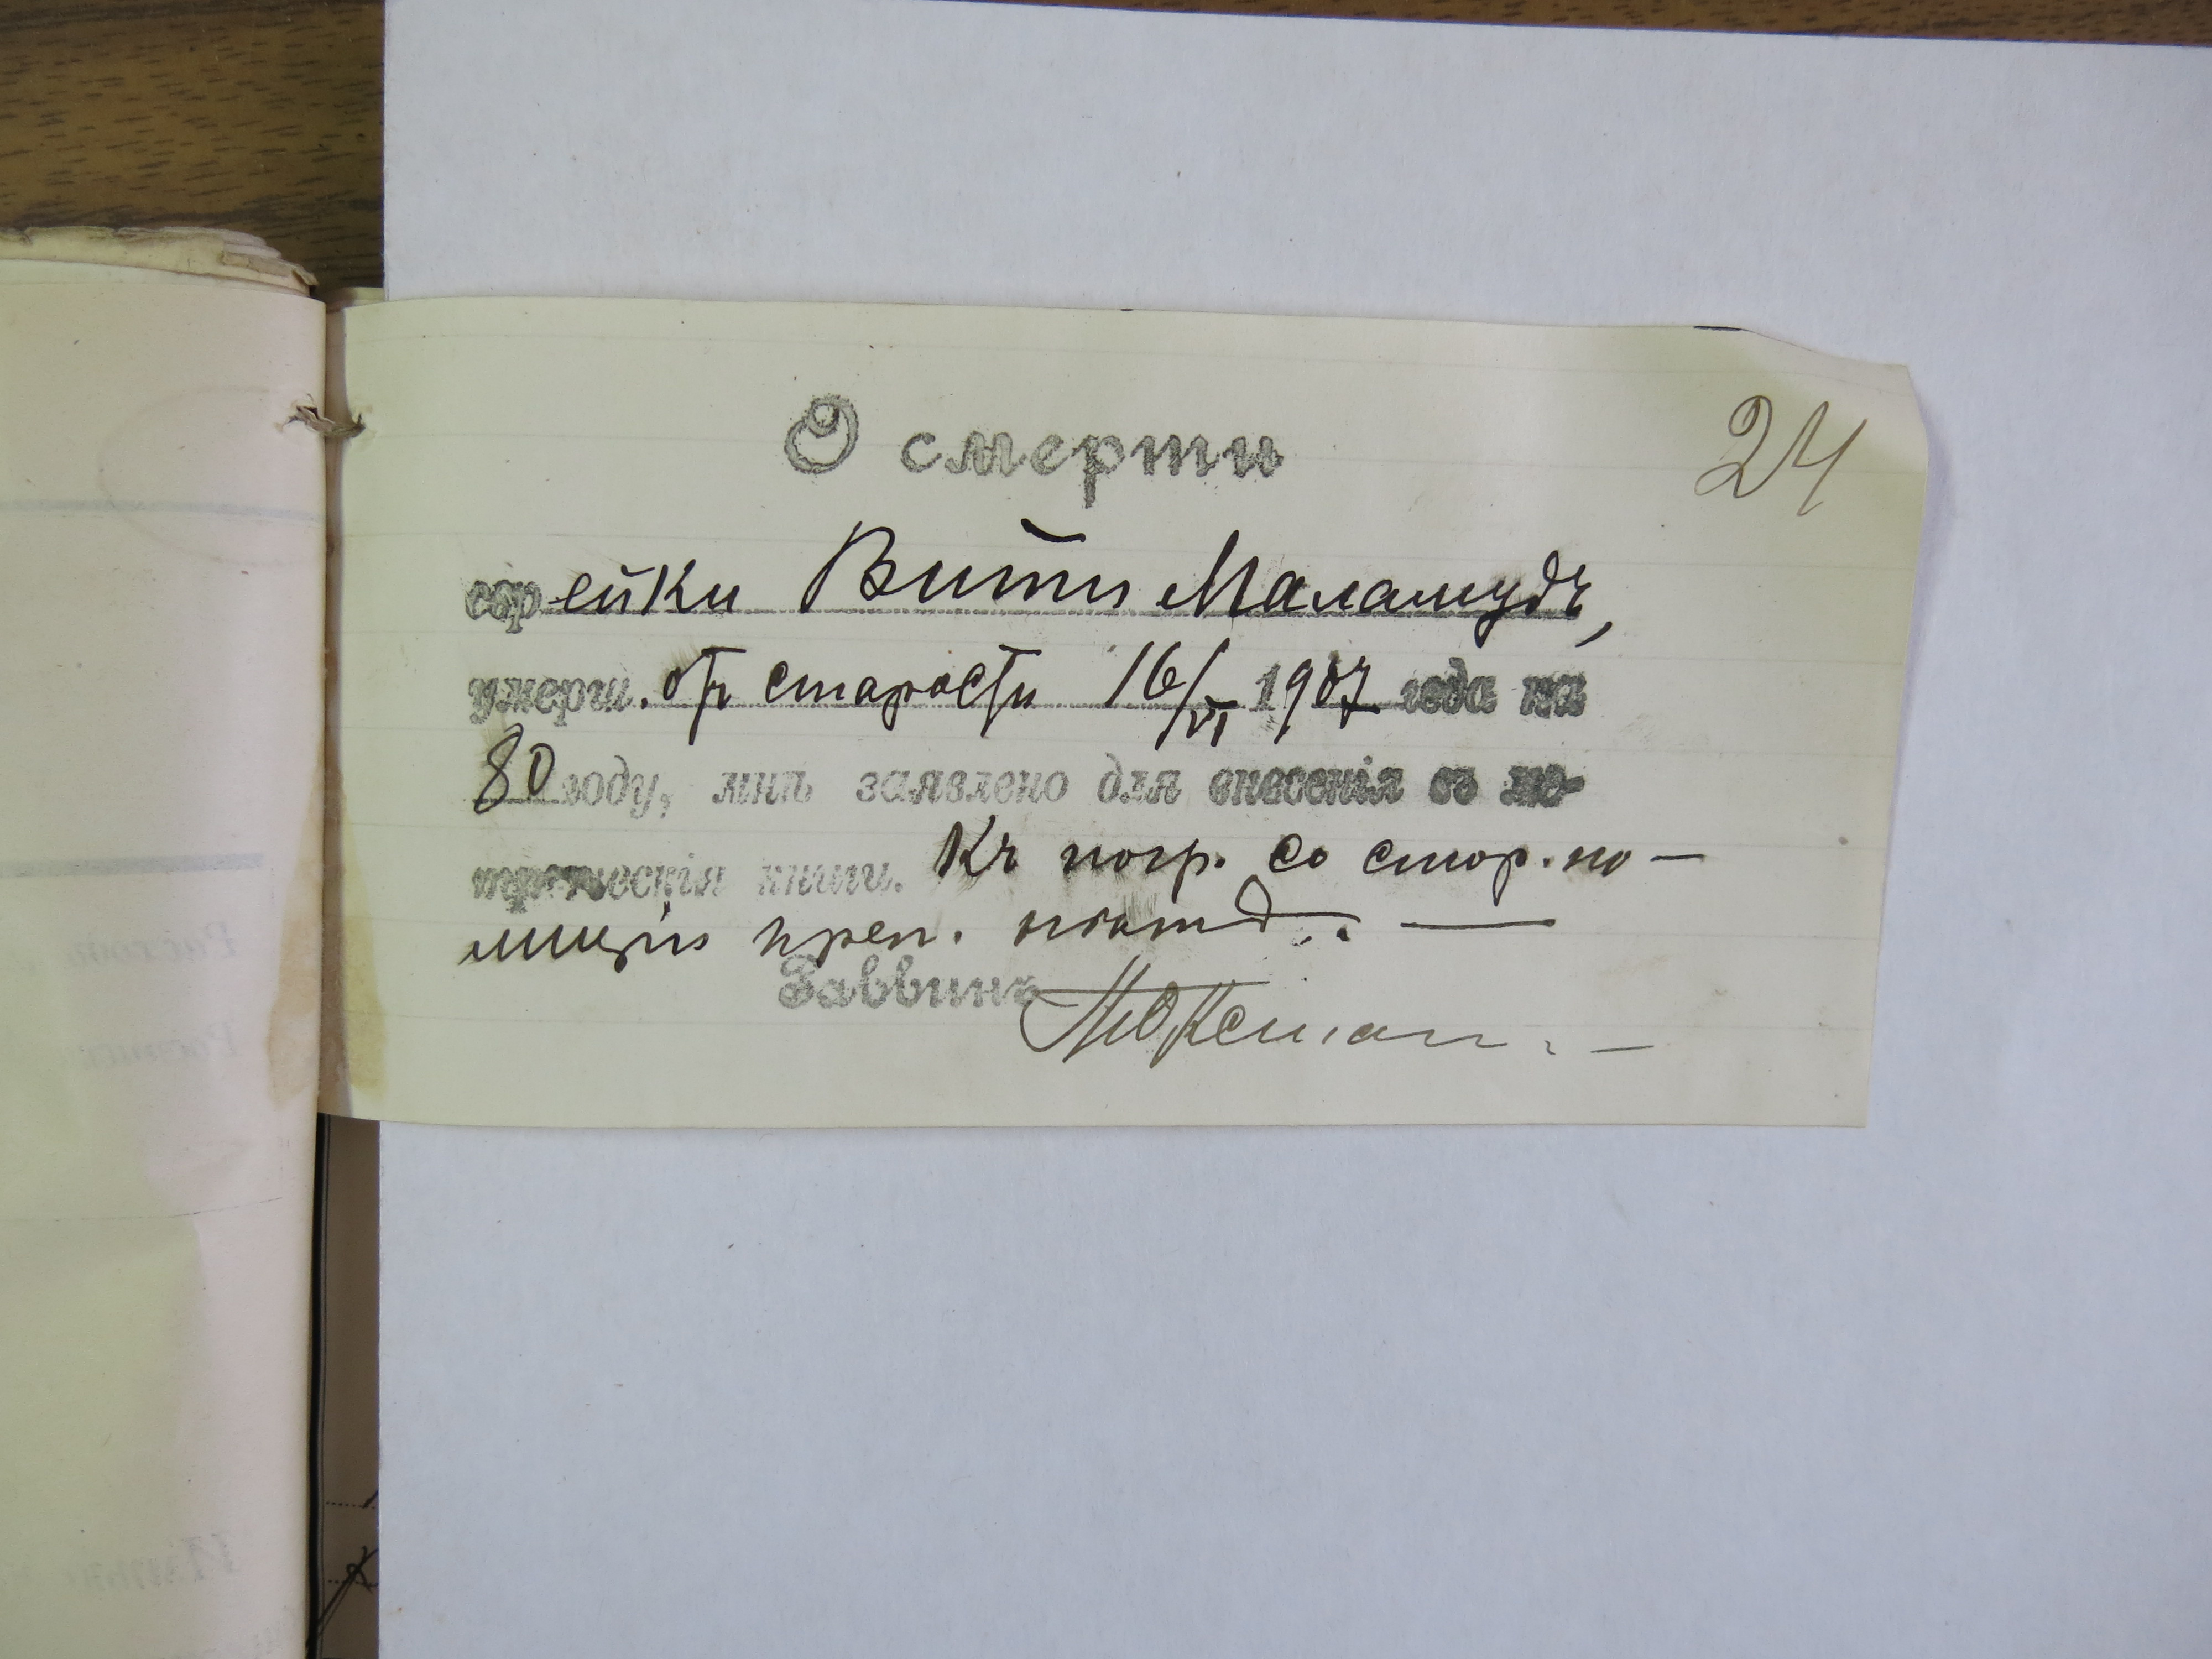 24
О смерти
еврейки Витти Маламудъ,
умерш. отъ старости 16/VI 1907 года на
80 году, мнѣ заявлено для внесенія въ ме-
трическія книги. Къ погр. со стор. по-
лиціи преп.
Раввинъ